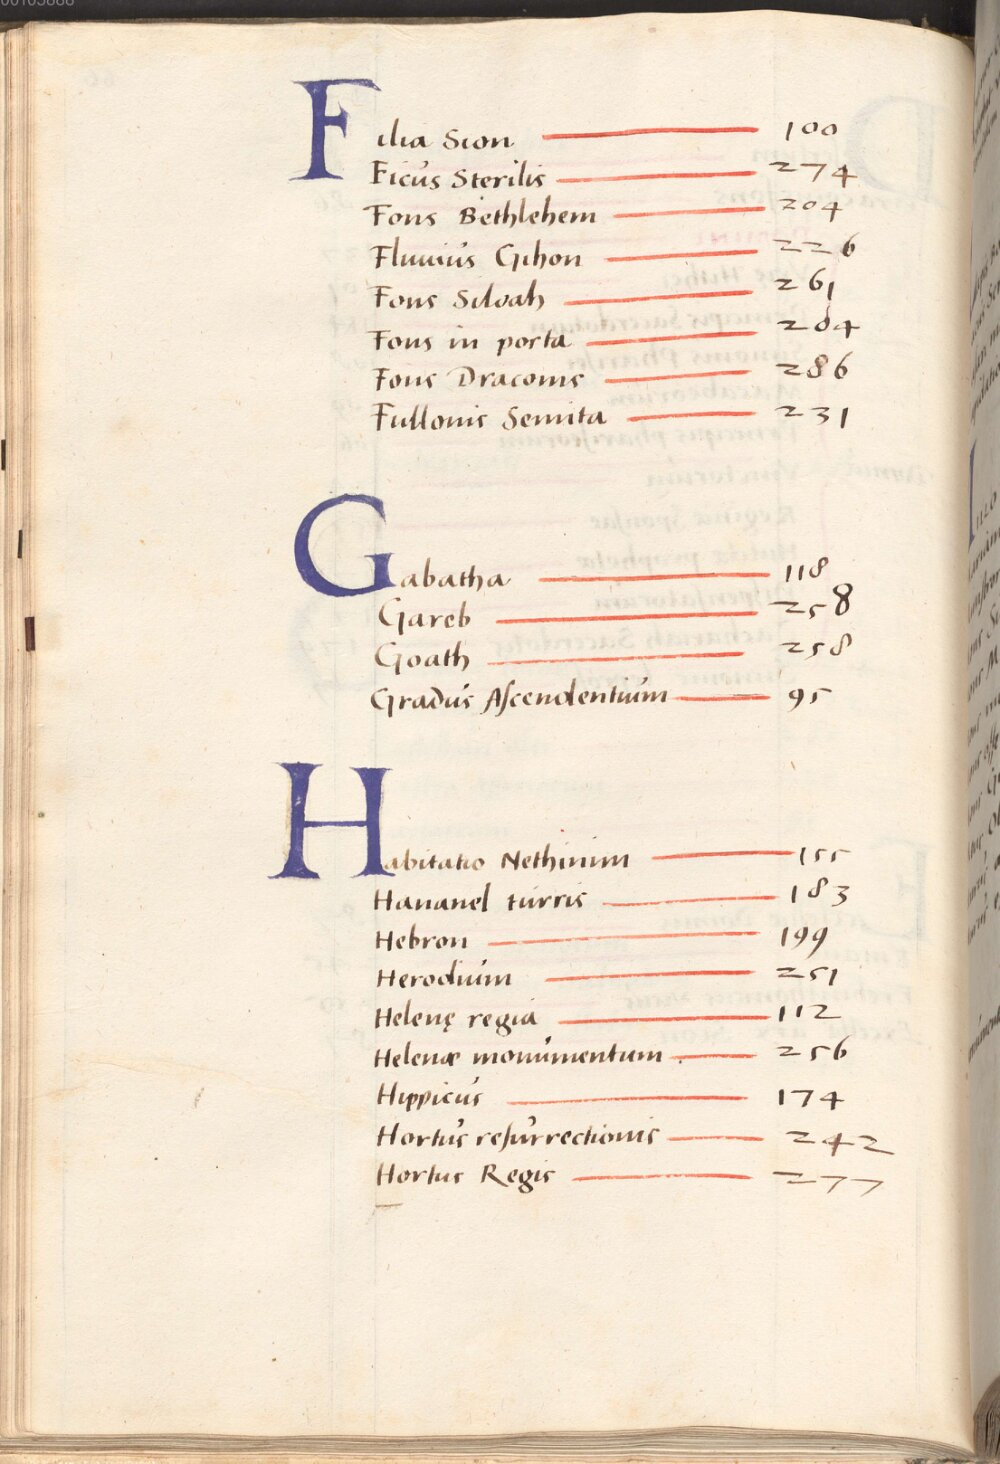 Filia Sion 100
Ficus Sterilis 274
Fons Bethlehem 204
Fluuius Gihon 226
Fons Siloah 261
Fons in porta 264
Fons Draconis 286
Fullonis Semita 231
Gabatha 118
Gareb 258
Goath 258
Gradus Ascendentium 95
Habitatio Nethinim 155
Hananel turris 183
Hebron 199
Herodium 251
Helenę regia 112
Helenæ monumentum 256
Hippicus 174
Hortus resurrectionis 242
Hortus Regis 277